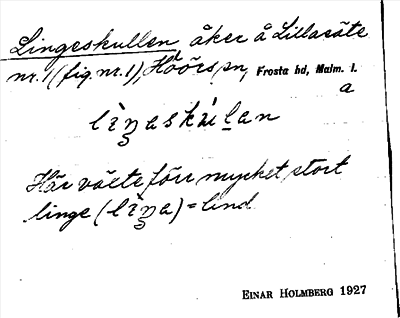 Lingeskullen, åker å Lillasäte
nr. 1 (fig. nr. 1), Höörs sn, Frosta hd, Malm. l.
a
Här växte förr mycket stort
linge ( ) = lind
EINAR HOLMBERG 1927